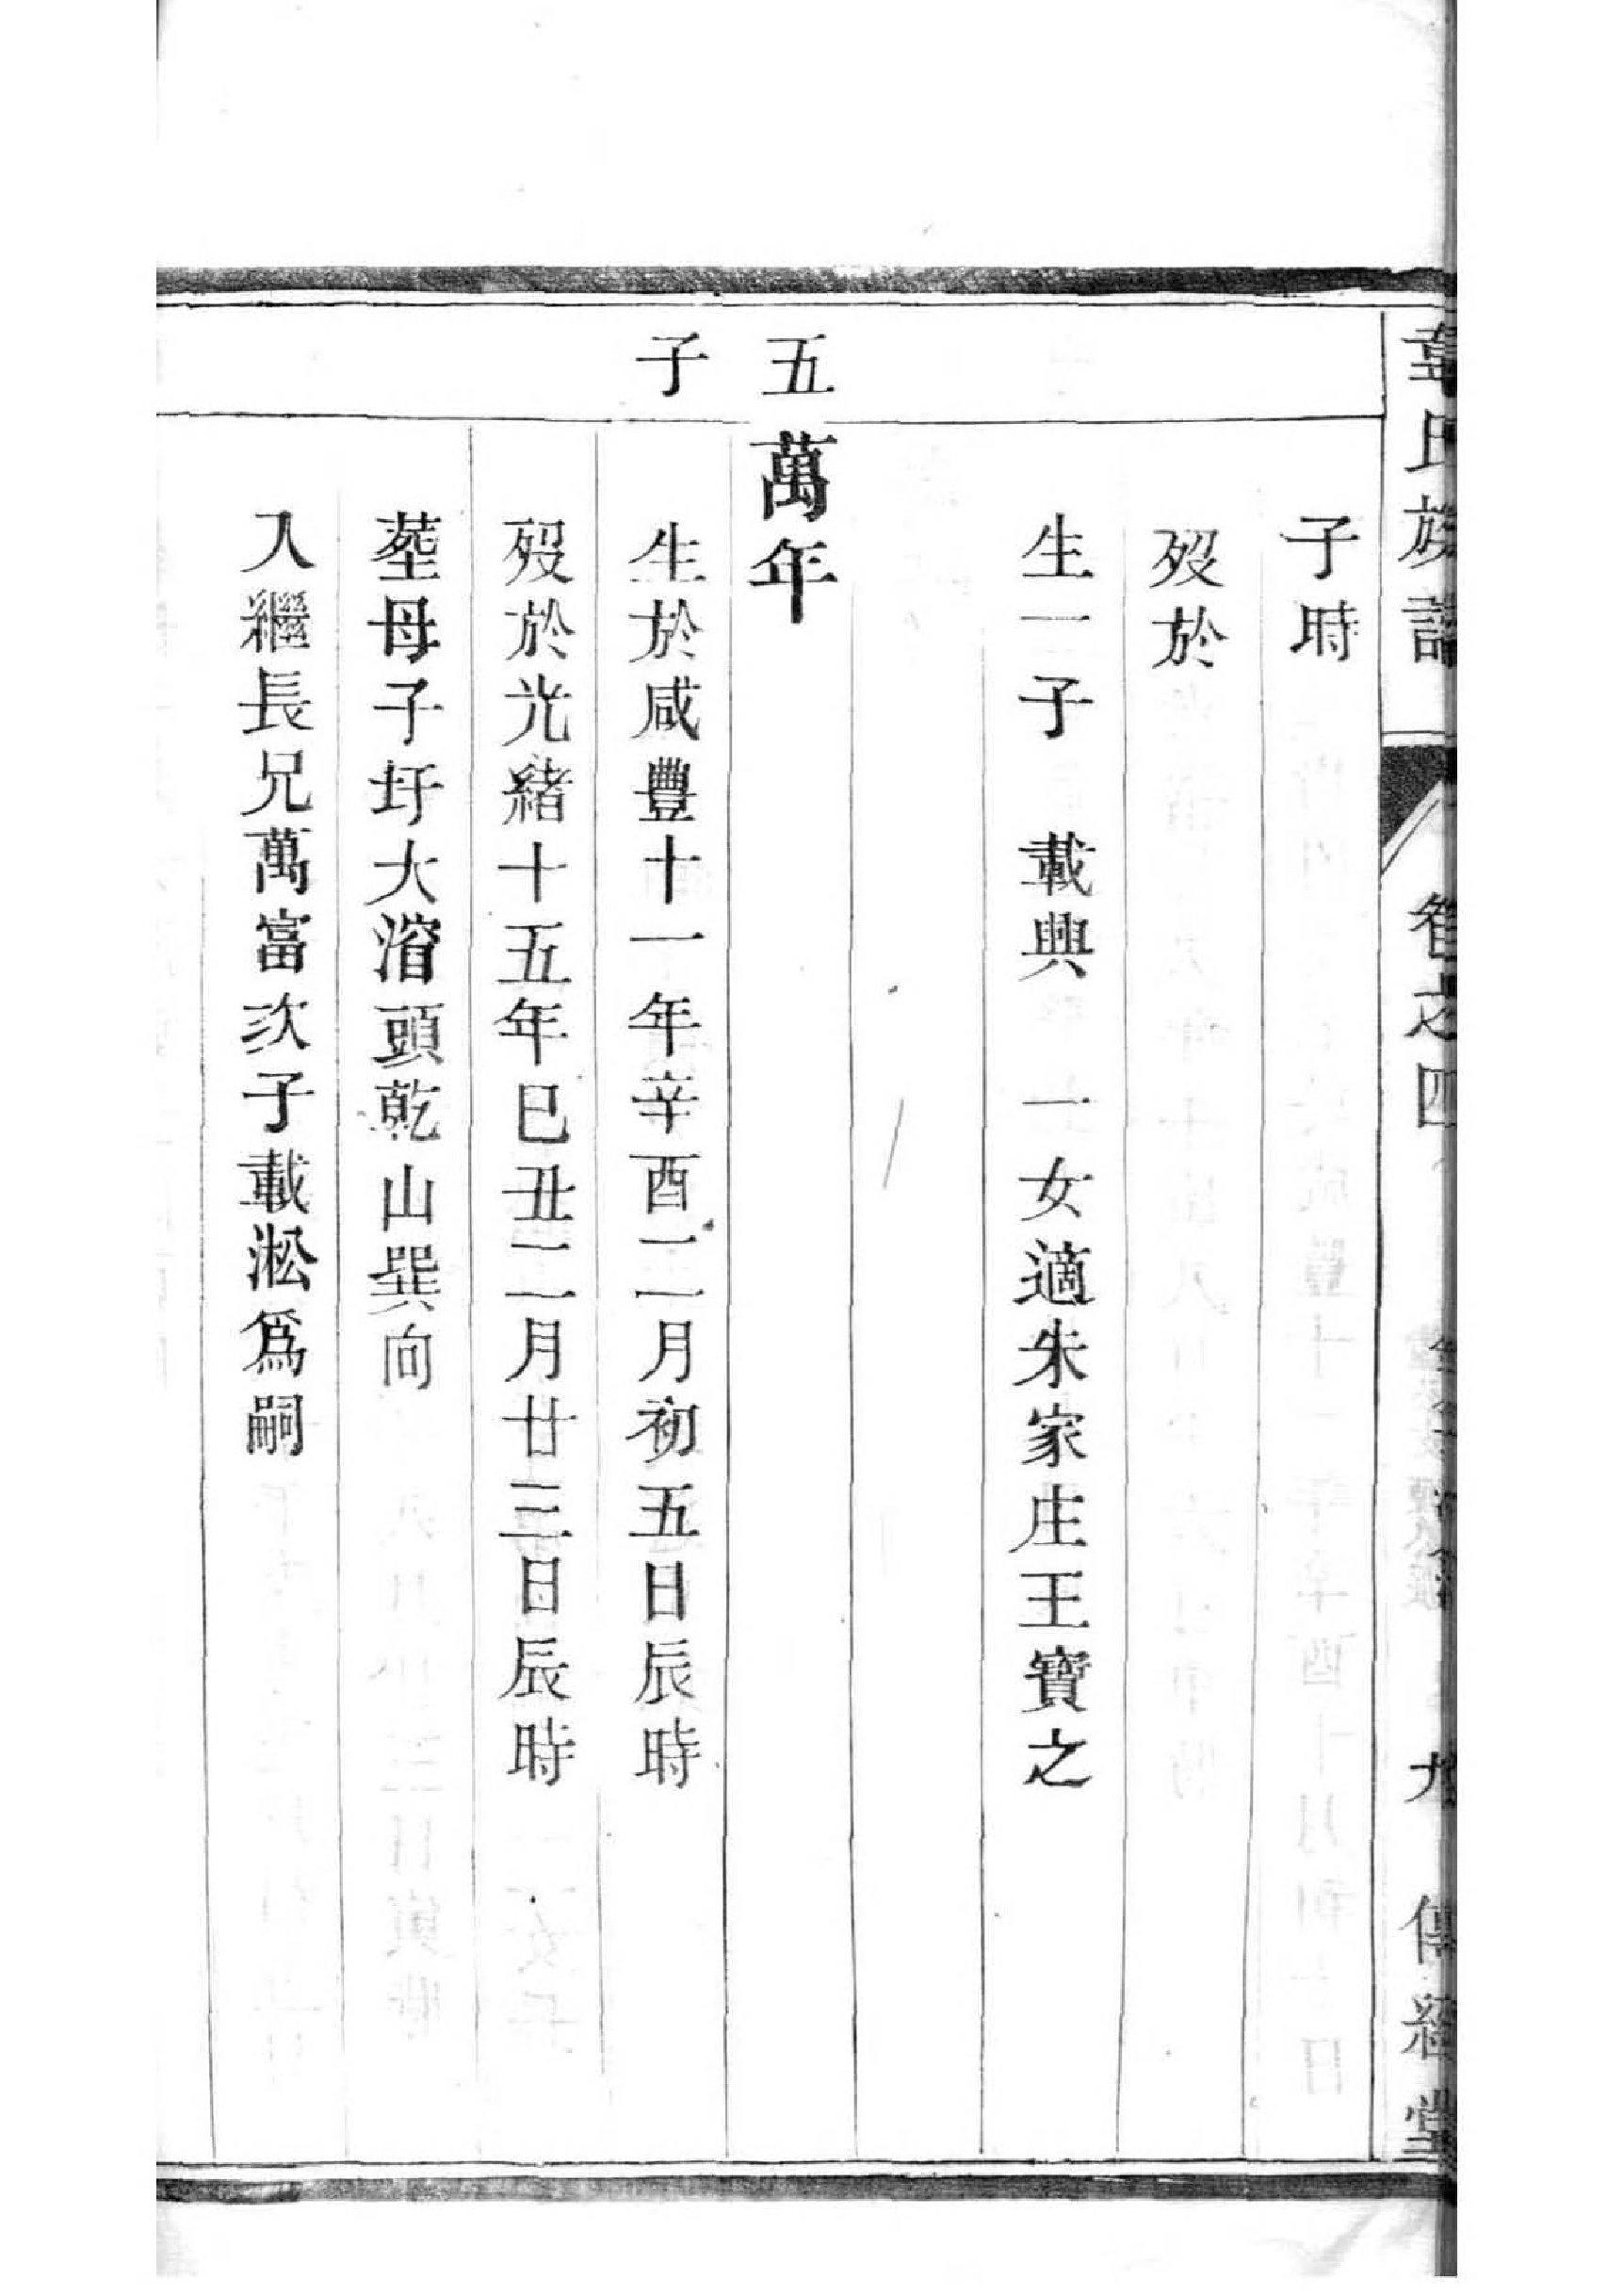 韋氏族譜
智之四
九
傳經堂
子時
歿於
生一子　載興　一女適朱家庄王寶之
五
萬年
子
生於咸豐十一年辛酉二月初五日辰時
歿於光緒十五年巳丑二月廿三日辰時
塟母子圩大溍頭乾山巽向
入繼長兄萬富次子載淞為嗣